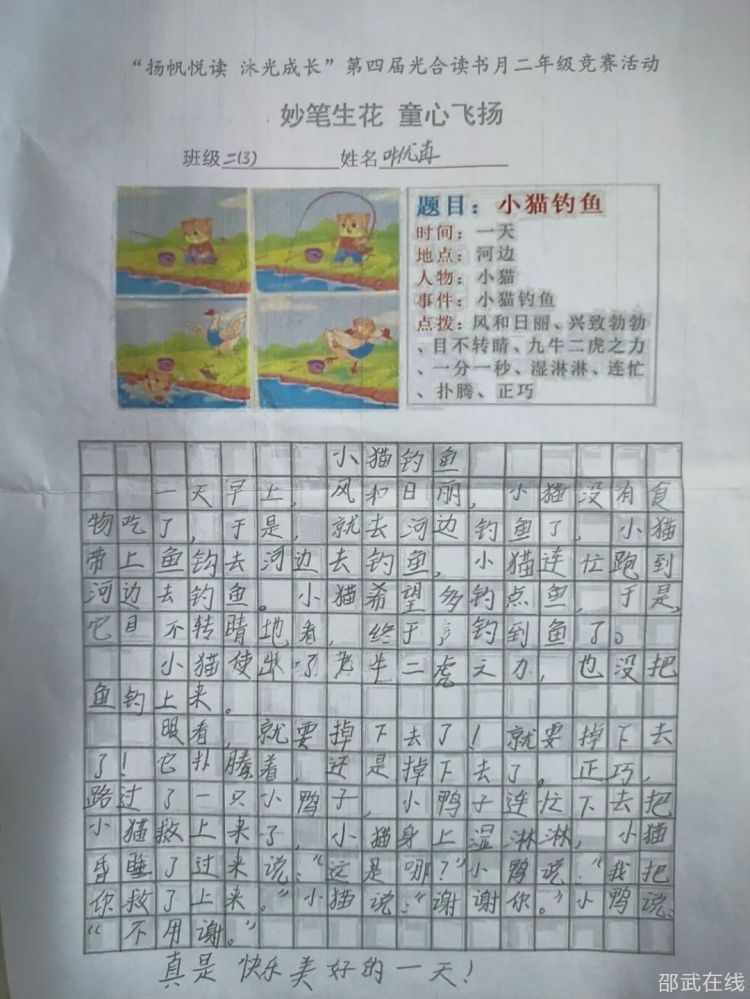 “扬帆悦读 沐光成长”第四届光合读书月二年级竞赛活动
妙笔生花 童心飞扬
班级二(3) 姓名叶优
题目：小猫钓鱼
时间：一天
地点：河边
人物：小猫
事件：小猫钓鱼
点拨：风和日丽、兴致勃勃
、目不转睛、九牛二虎之力
、一分一秒、湿淋淋、连忙
、扑腾、正巧
小猫钓鱼
一天早上，风和日丽，小猫没有食
物吃了，于是，就去河边钓鱼了，小猫
带上鱼钩去河边去钓鱼，小猫连忙跑到
河边去钓鱼。小猫希望多钓点鱼，于是，
它目不转睛地看，终于钓到鱼了。
小猫使出了九牛二虎之力，也没把
鱼钓上来。
眼看，就要掉下去了！就要掉下去
了！它扑腾着，还是掉下去了。正巧，
路过了一只小鸭子，小鸭子连忙下去把
小猫救上来了，小猫身上湿淋淋，小猫
昏睡了过来说：“这是哪？”小鸭说：“我把
你救了上来。”小猫说：“谢谢你。”小鸭说：
“不用谢。”
真是快乐美好的一天！
邵武在线